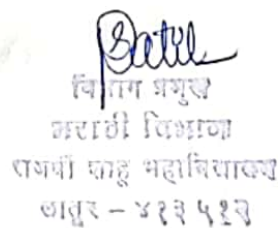 Patil
विभाग प्रमुख
मराठी विभाग
राजर्षी शाहू महाविद्यालय
लातूर - ४१३ ५१२